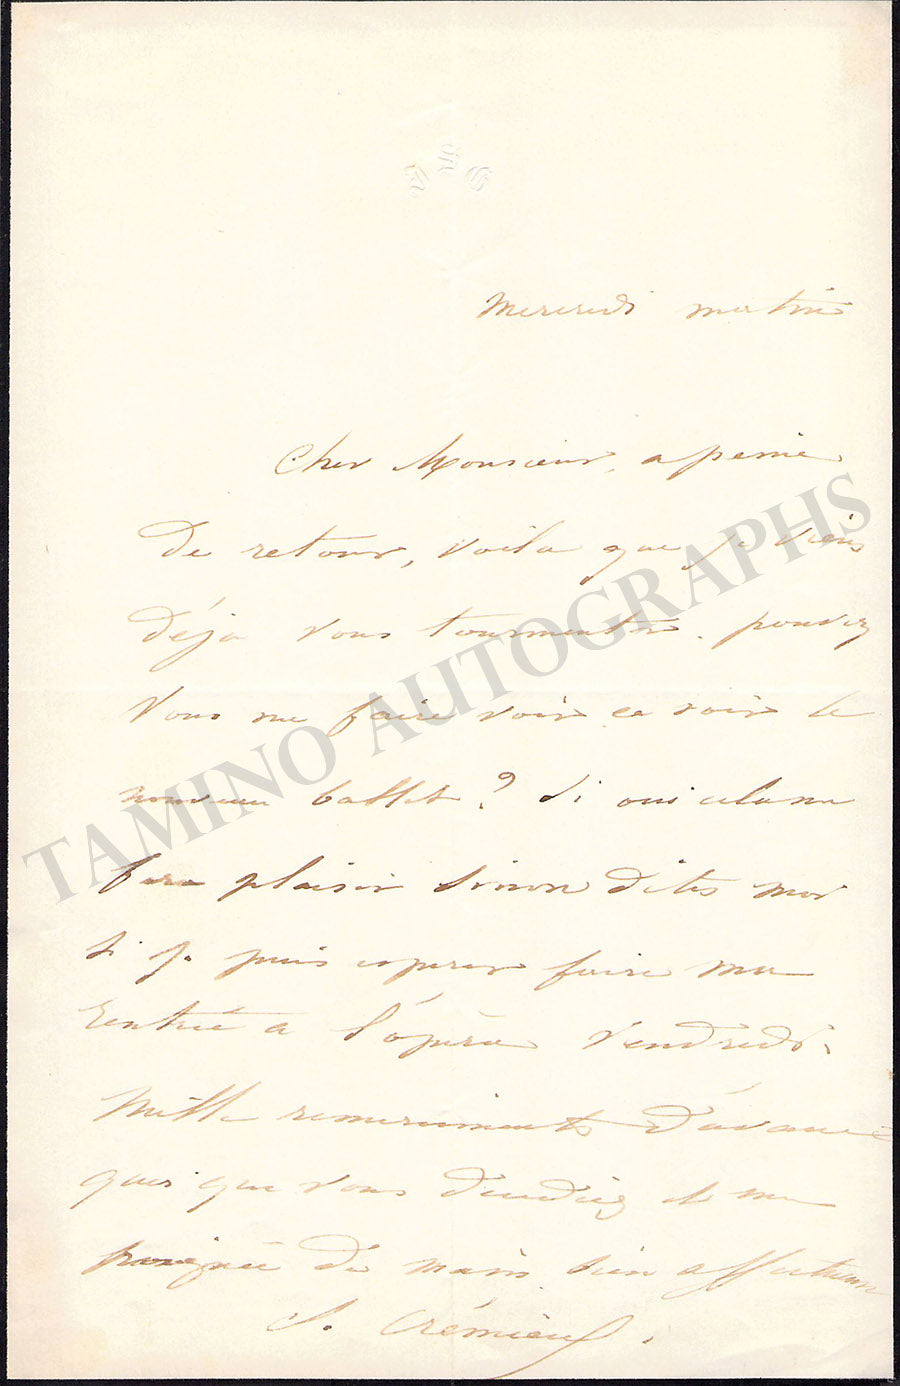 J S C
Mercredi matin
Cher Monsieur, a peine
de retour, voila que je viens
déja vous tourmenter. pouvez
vous me faire voir ce soir le
nouveau ballet? Si oui cela me
fera plaisir sinon dites moi
si je puis esperer faire ma
rentrée a l'opéra Vendredi.
Mille remerciments d'avance
quoi que vous décidiez et ma
poignée de main bien affectueuse
S. Crémieux.
TAMINO AUTOGRAPHS